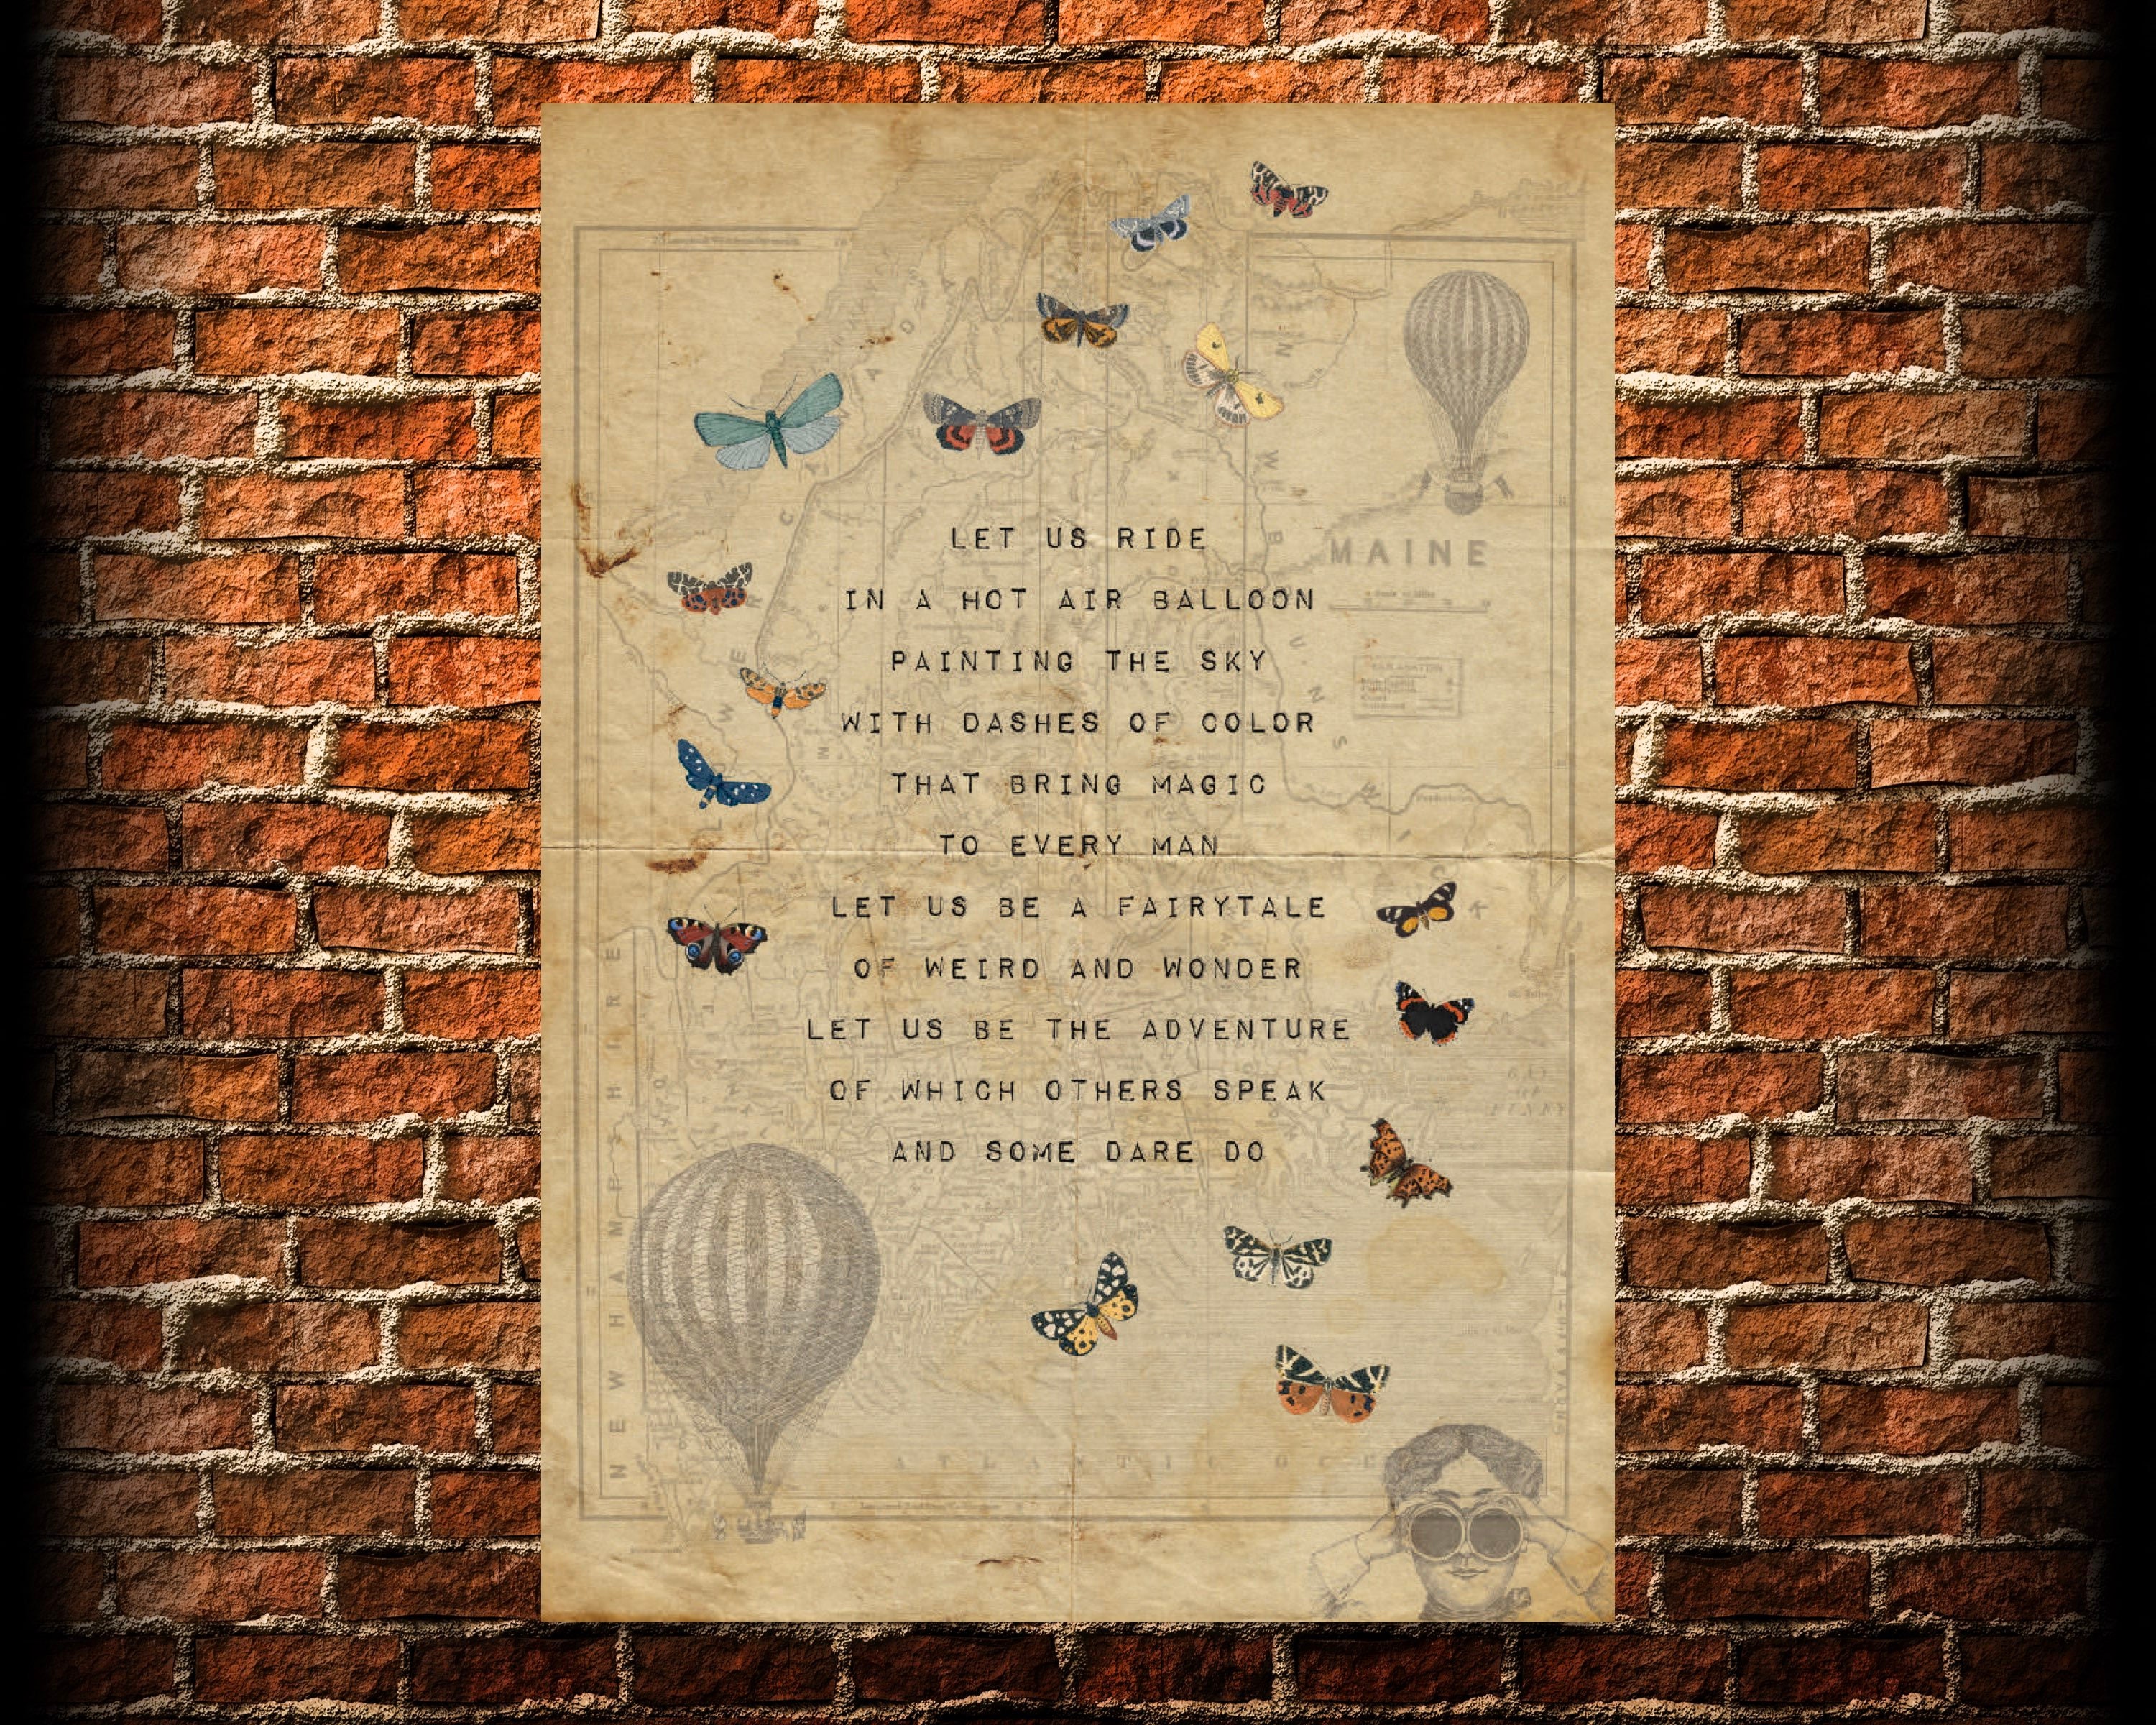 MAINE
LET US RIDE
IN A HOT AIR BALLOON
PAINTING THE SKY
WITH DASHES OF COLOR
THAT BRING MAGIC
TO EVERY MAN
LET US BE A FAIRYTALE
OF WEIRD AND WONDER
LET US BE THE ADVENTURE
OF WHICH OTHERS SPEAK
AND SOME DARE DO
NEW HAMPSHIRE
ATLANTIC